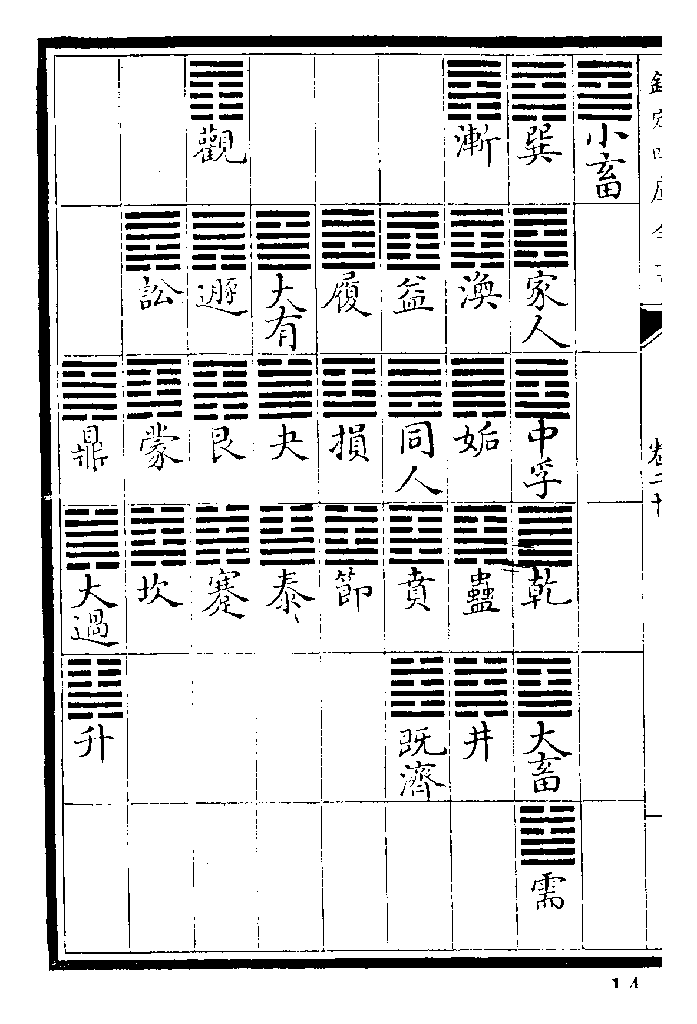 欽定四庫全書
卷二十
小畜
巽
家人
中孚
乾
大畜
需
漸
渙
姤
蠱
井
益
同人
賁
既濟
履
損
節
大有
夬
泰
觀
遯
艮
蹇
訟
蒙
坎
鼎
大過
升
14